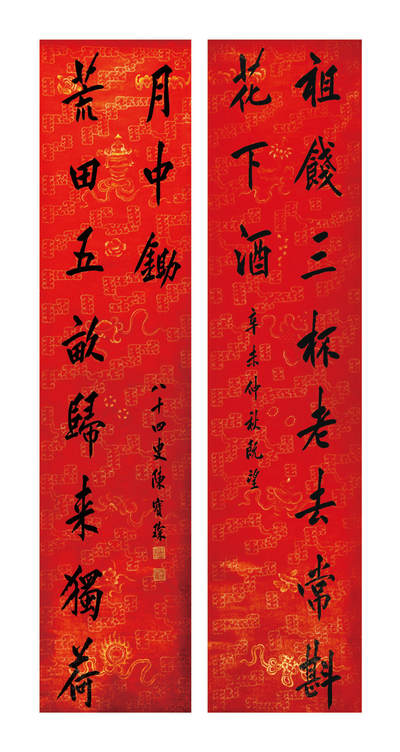 祖餞三杯老去常斟
花下酒
辛未仲秋既望
荒田五畝歸来獨荷
月中鋤
八十四叟陳寶琛